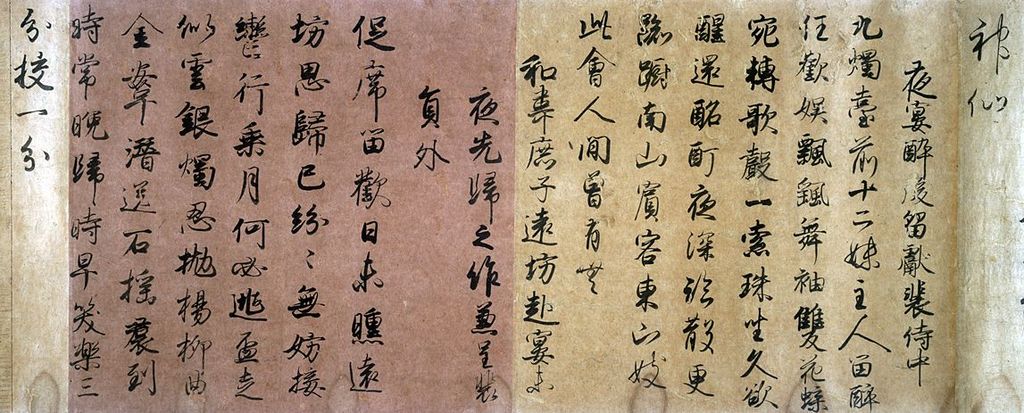 神仙
夜宴醉後留獻裴侍中
九燭臺前十二姝主人留醉
任歡娛飄颻舞袖雙飛蝶
宛轉歌聲一索珠坐久欲
醒還酩酊夜深臨散更
踟躕南山賓客東山妓
此會人間曾有無
和韋庶子遠坊赴宴未
夜先歸之作兼呈裴
員外
促席留歡日未曛遠
坊思歸已紛々無妨按
轡行乘月何必逃盃走
似雲銀燭忍抛楊柳曲
金鞍潛送石榴裙到
時常晚歸時早笑樂三
分校一分